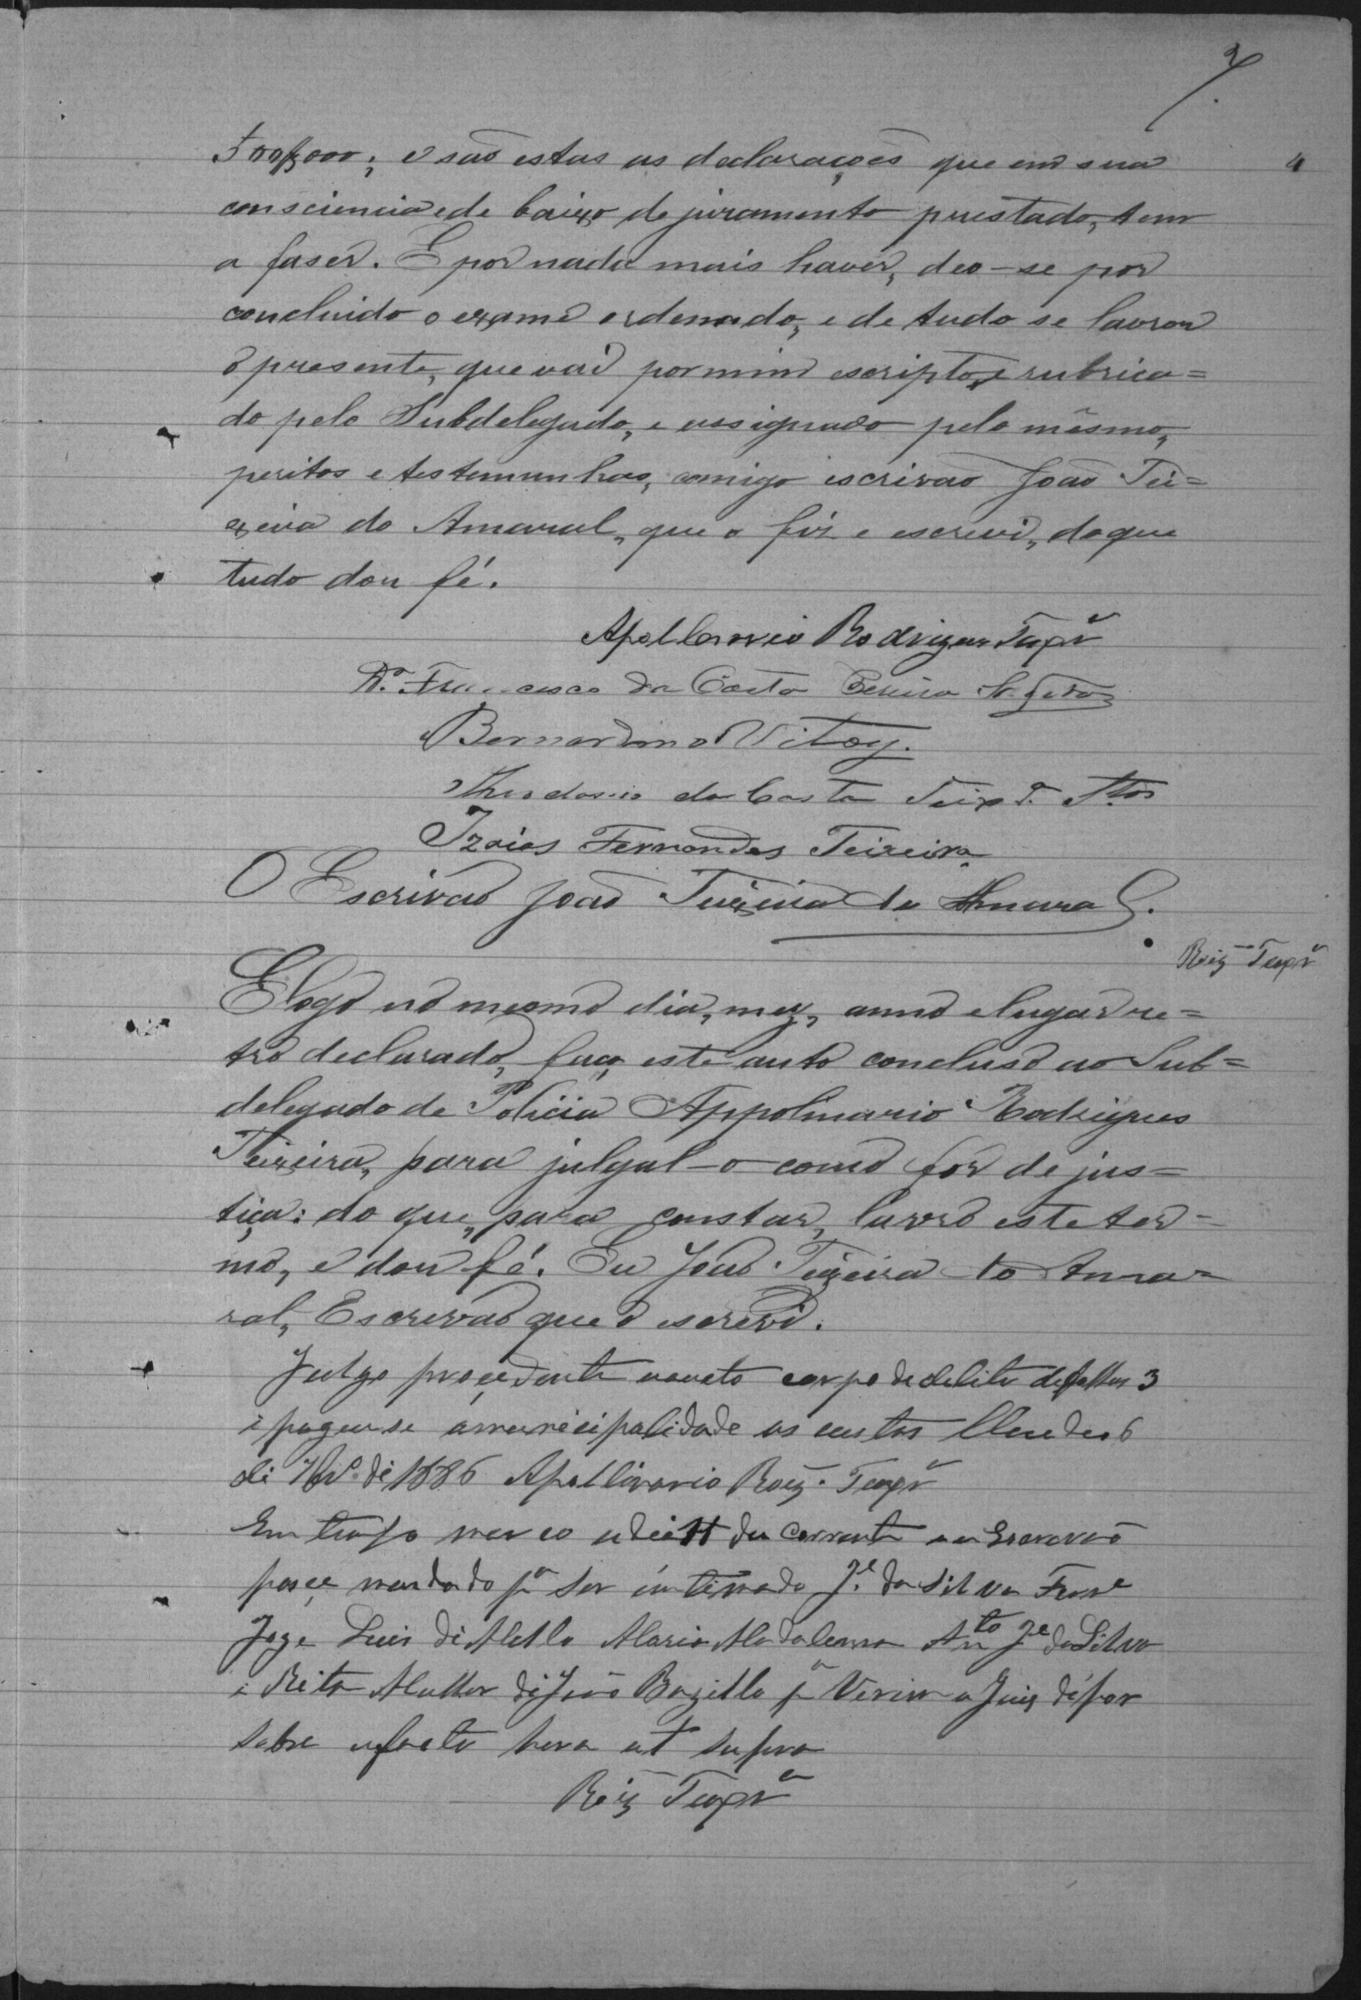 7
4
500$000; e são estas as declarações que em sua
consciencia e de baixo do juramento prestado, tem
a faser. E por nada mais haver, deo-se por
concluido o exame ordenado, e de tudo se lavrou
o presente, que vai por mim escripto, e rubrica=
do pelo Subdelegado, e assignado pelo mêsmo,
peritos e testemunhas, comigo escrivão João Tei=
xeira do Amaral, que o fiz e escrevi, do que
tudo dou fé.
Apollinario Rodrigues Teixrª
Dr. Francisco da Costa Pereira
Bernardino Vitoy.
Theodosio da Costa Teixª
Izaias Fernandes Teixeira
O Escrivão João Teixeira do Amaral.
Roiz Teixrª
E logo no mesmo dia, mez, anno e lugar re=
tro declarado, faço este auto concluso ao Sub=
delegado de Policia Appolinario Rodrigues
Teixeira, para julgal-o como fôr de jus=
tiça: do que, para constar, lavro este ter=
mo, e dou fé. Eu João Teixeira do Ama=
ral, Escrivão que o escrevi.
Julgo procedente o auto corpo de delito de folhas 3
e pague-se a municipalidade as custas 6
de de 1886 Apollinario Roiz Teixrª
Em tempo marco o dia 11 do corrente o Escrivão
passe mandado pª ser intimado Jé. da Silva
Joze Luis de Mello Maria Madalena Antº Jé da Silva
e Rita Mulher de João Bazillo pª Virem a Juiz depor
sobre o facto hera ut supra
Roiz Teixrª